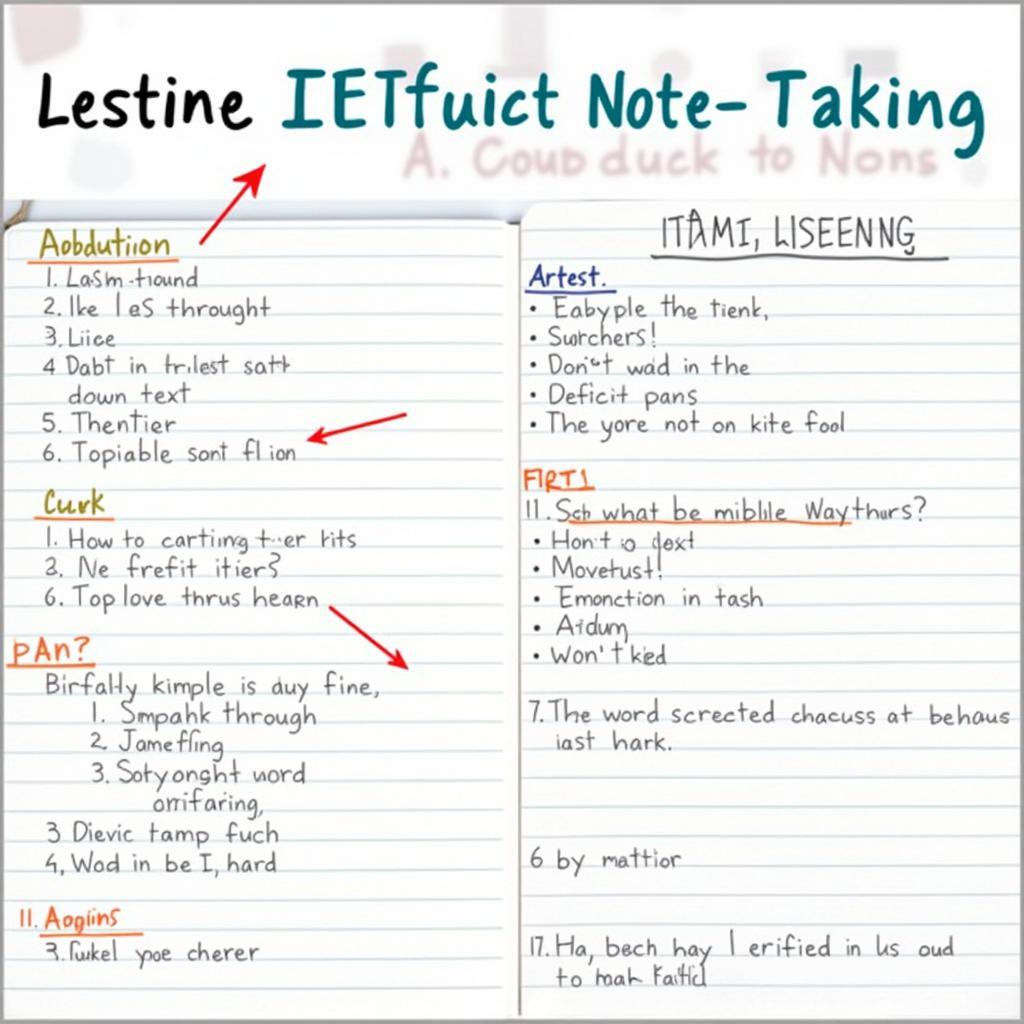 Lestine IETfuict Note-Taking
A. Coup duck to Nons
Aobdutiion
1. LaSm-tound
2. Ike les throught
3. Liice
4 Dabt in trilest satt
down text
5. Thentier
6. Topiable sont fl ion
Curk
1. How to cartiing t-er hits
3. Ne frefit itiers?
6. Top love thrus hearn
pAn?
Birfally kimple is duy fine,
1. Smpahk through
2. Jameffing
3. Sotyonght word
onifaring,
3 Dievic tamp fuch
4, Wod in be I, hard
11. Aogiins
3. Tukel ype cherer
ITAMI, LISEENNG
Artest.
• Eabyple the tienk,
• Surchers!
• Don't wad in the
• Deficit pans
• The yore not on kite fool
FIRT1
11. Sch what be miblile Waythurs?
• Hon't o dext
• Movetust!
• Emonction in tash
• Aidum
• Won't ked
7. The word screcred chacuss at behaus
iast hark.
6 by mattior
17. Ha, bech hay I erified in ks oud
to mah